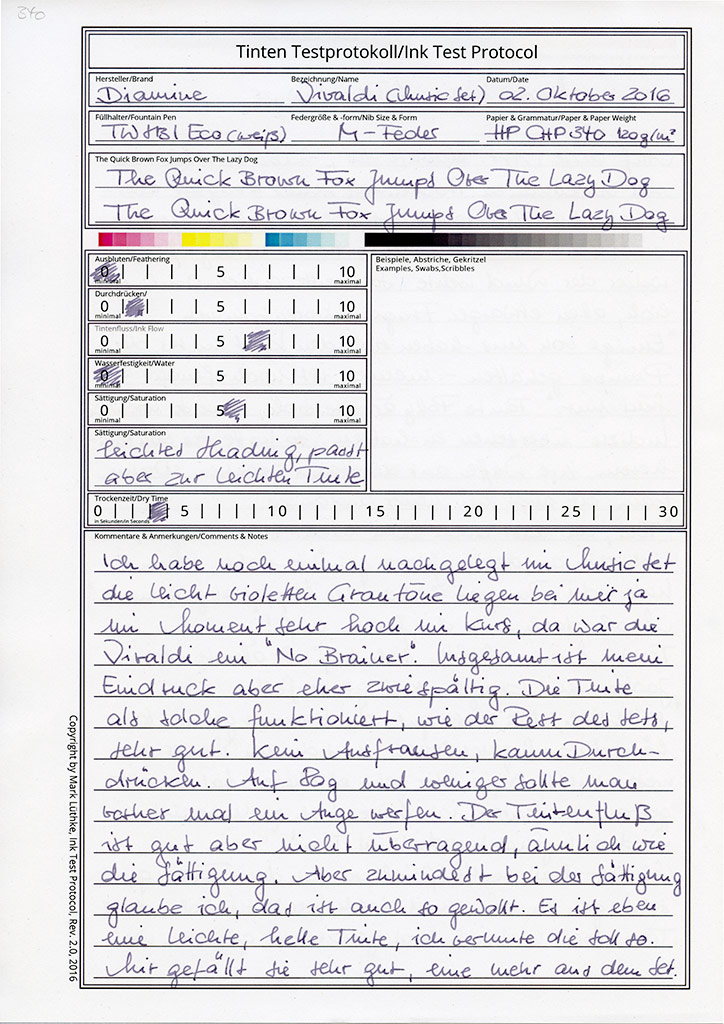 340
Tinten Testprotokoll/Ink Test Protocol
Hersteller/Brand Bezeichnung/Name Datum/Date
Diamine Vivaldi (Music Set) 02. Oktober 2016
Füllhalter/Fountain Pen Federgröße & -form/Nib Size & Form Papier & Grammatur/Paper & Paper Weight
TWSBI Eco (weiß) M-Feder HP CHP340 120g/m²
The Quick Brown Fox Jumps Over The Lazy Dog
The Quick Brown Fox Jumps Over The Lazy Dog
The Quick Brown Fox Jumps Over The Lazy Dog
Ausbluten/Feathering
0 | | | | 5 | | | | 10
minimal maximal
Durchdrücken/
0 | | | | 5 | | | | 10
minimal maximal
Tintenfluss/Ink Flow
0 | | | | 5 | | | | 10
minimal maximal
Wasserfestigkeit/Water
0 | | | | 5 | | | | 10
minimal maximal
Sättigung/Saturation
0 | | | | 5 | | | | 10
minimal maximal
Sättigung/Saturation
leichtes Shading, passt
aber zur leichten Tinte
Beispiele, Abstriche, Gekritzel
Examples, Swabs,Scribbles
Trockenzeit/Dry Time
0 | | | | 5 | | | | 10 | | | | 15 | | | | 20 | | | | 25 | | | | 30
in Sekunden/in Seconds
Kommentare & Anmerkungen/Comments & Notes
Ich habe noch einmal nachgelegt im Music Set
die leicht violetten Grautöne liegen bei mir ja
im Moment sehr hoch im Kurs, da war die
Vivaldi ein "No Brainer". Insgesamt ist mein
Eindruck aber eher zwiespältig. Die Tinte
als solche funktioniert, wie der Rest des Sets,
sehr gut. Kein Ausfransen, kaum Durch-
drücken. Auf 80g und weniger sollte man
vorher mal ein Auge werfen. Der Tintenfluß
ist gut aber nicht überragend, ähnlich wie
die Sättigung. Aber zumindest bei der Sättigung
glaube ich, das ist auch so gewollt. Es ist eben
eine leichte, helle Tinte, ich vermute die soll so.
Mir gefällt sie sehr gut, eine mehr aus dem Set.
Copyright by Mark Lüthke, Ink Test Protocol, Rev. 2.0, 2016